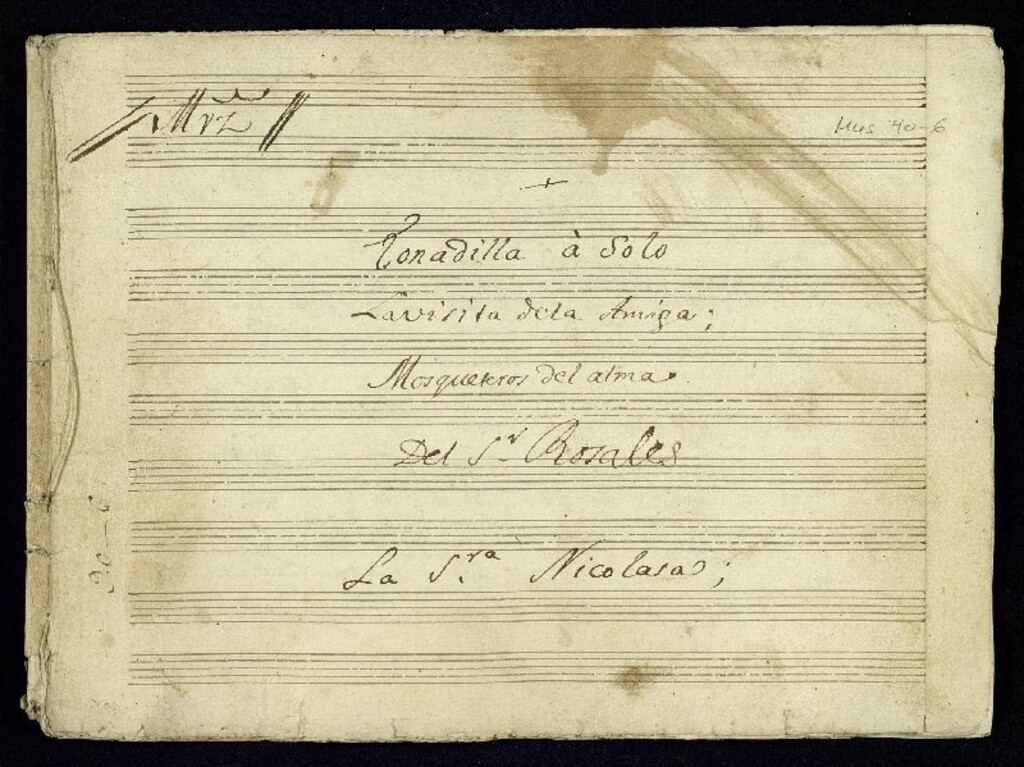 Mrz
Mus 40-6
Tonadilla à Solo
La visita dela Amiga;
Mosqueteros del alma
Del Sr. Rosales
La S.ra Nicolasa;